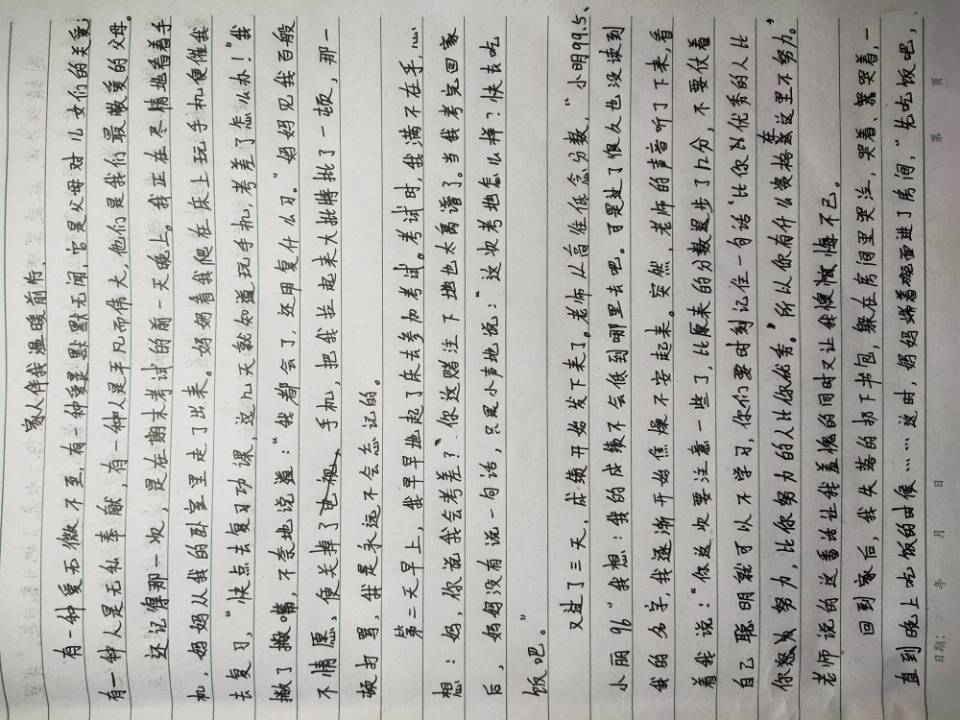 家人伴我温暖前行.
有一种爱无微不至,有一种爱是默默无闻,它是父母对儿女们的关爱;
有一种人是无私奉献,有一种人是平凡而伟大,他们是我们最敬爱的父母。
还记得那一次,是在期末考试的前一天晚上。我正在尽情地看着手
机,妈妈从我的卧室里走了出来。妈妈看我爬在床上玩手机便催我
去复习,“快点去复习功课,这几天就知道玩手机,考差了怎么办!”我
撇了撇嘴,不奈地说道:“我都会了,还用复什么习。”妈妈见我百般
不情愿,便关掉了手机,把我拉起来大批特批了一顿,那一
顿打骂,我是永远不会忘记的。
第二天早上,我早早地起了床去参加考试。考试时,我满不在乎,心
想:妈,你说我会考差?你这赌注下地也太离谱了。当我考完回家
后,妈妈没有说一句话,只是小声地说:“这次考地怎么样?快去吃
饭吧。”
又过了三天,成绩开始发下来了。老师从高往低念分数,“小明99.5、
小丽96”我想:我的成绩不会低到哪里去吧。可是过了很久也没读到
我的名字,我逐渐开始焦燥不安起来。突然,老师的声音听了下来,看
着我说:“你这次要注意一些了,比原来的分数退步了12分,不要仗着
自己聪明就可以不学习,你们要时刻记住一句话‘比你优秀的人比
你努力,比你努力的人比你优秀。’所以你有什么资格在这里不努力。”
老师说的这番话让我羞愧的同时又让我懊悔不已。
回到家后,我失落的扔下书包,躲在房间里哭泣,哭着、哭着,一
直到晚上吃饭的时候……这时,妈妈端着碗面进了房间,“先吃饭吧,
日期: 年 月 日 第 页